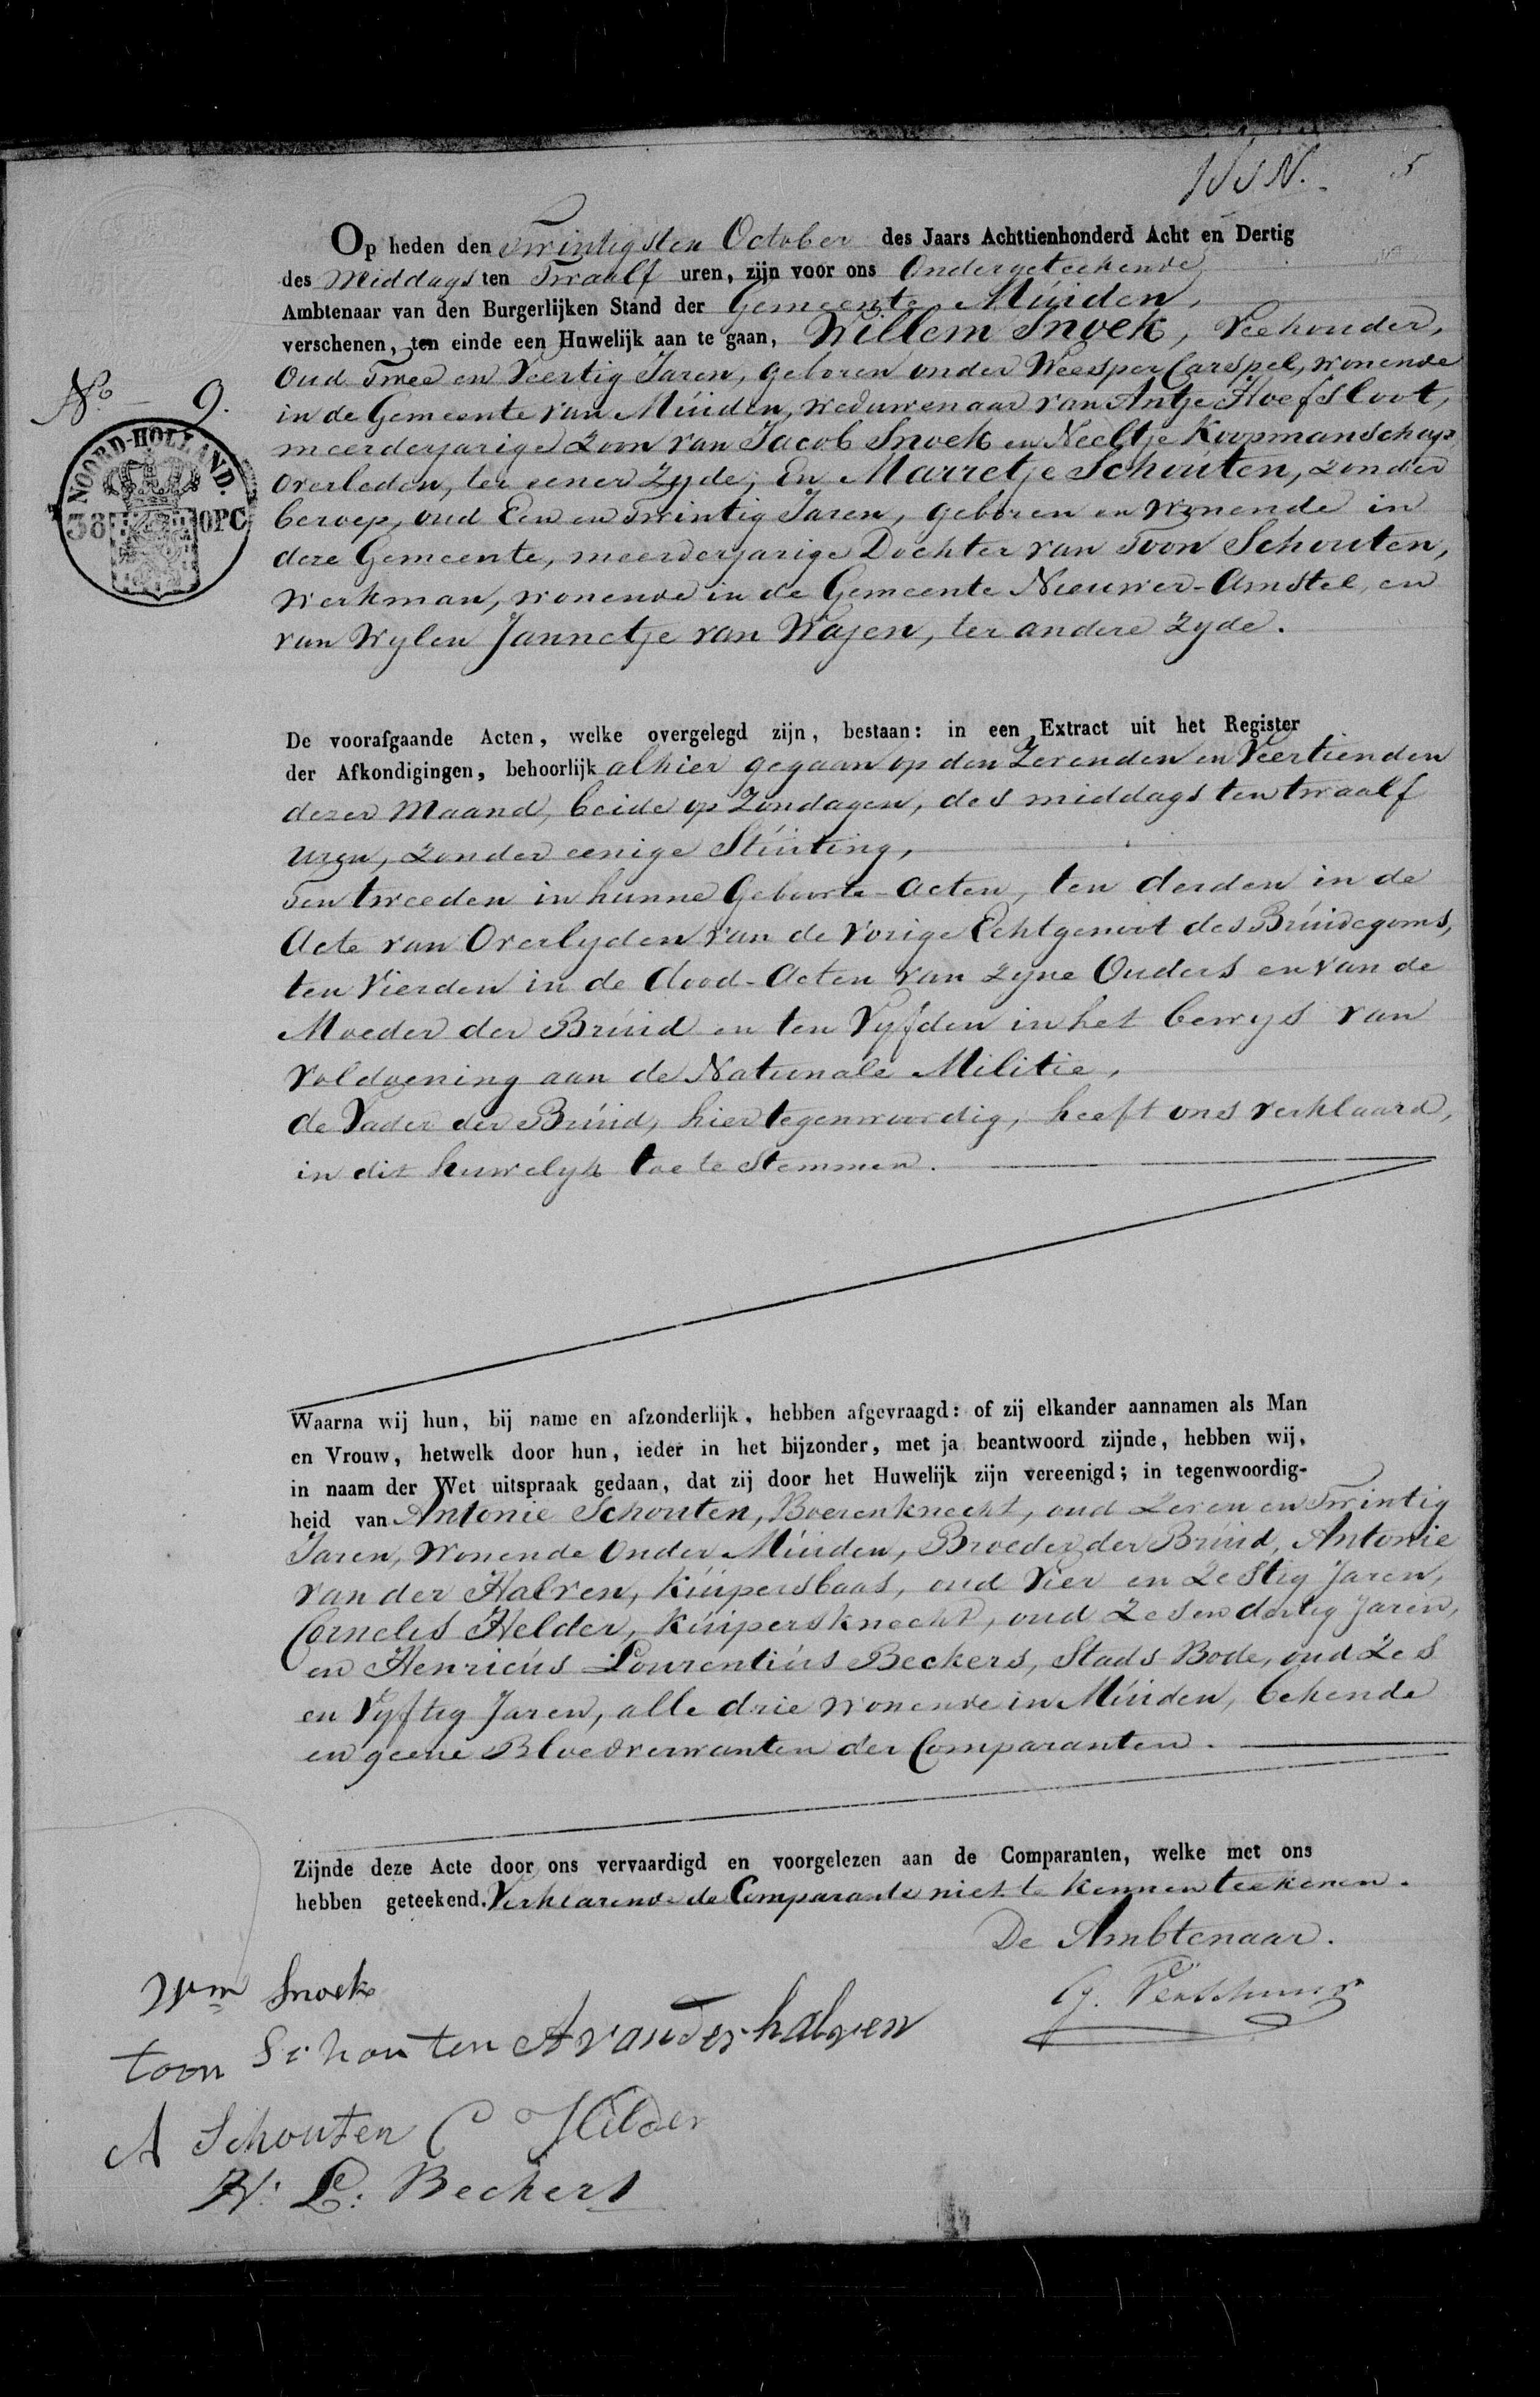 5
Op heden den Twintigsten October des Jaars Achttienhonderd Acht en Dertig
des Middags ten Twaalf uren, zijn voor ons Ondergeteekende
Ambtenaar van den Burgerlijken Stand der Gemeente Muiden,
verschenen, ten einde een Huwelijk aan te gaan, Willem Snoek, Veehouder,
Oud Twee en Veertig Jaren, geboren onder Weesper Carspel, wonende
in de Gemeente van Muiden, weduwenaar van Antje Hoefsloot,
No. 9.
meerderjarige Zoon van Jacob Snoek en Neeltje Koopmanschap
NOORD-HOLLAND.
38 OPC
overleden, ter eener Zyde; En Marretje Schouten, zonder
beroep, oud Een en Twintig Jaren, geboren en wonende in
deze Gemeente, meerderjarige Dochter van Toon Schouten,
Werkman, wonende in de Gemeente Nieuwer-Amstel, en
van Wylen Jannetje van Wajen, ter andere Zyde.
De voorafgaande Acten, welke overgelegd zijn, bestaan: in een Extract uit het Register
der Afkondigingen, behoorlijk alhier gegaan op den Zevenden en Veertienden
dezer Maand, beide op Zondagen, des middags ten twaalf
uren, zonder eenige Stuiting,
Ten tweeden in hunne Geboorte-Acten, ten derden in de
Acte van Overlyden van de vorige Echtgenoot des Bruidegoms,
ten Vierden in de dood-Acten van zyne Ouders en van de
Moeder der Bruid en ten Vyfden in het bewys van
Voldoening aan de Nationale Militie,
de Vader der Bruid, hier tegenwoordig, heeft ons verklaard,
in dit huwelyk toe te Stemmen.
Waarna wij hun, bij name en afzonderlijk, hebben afgevraagd: of zij elkander aannamen als Man
en Vrouw, hetwelk door hun, ieder in het bijzonder, met ja beantwoord zijnde, hebben wij,
in naam der Wet uitspraak gedaan, dat zij door het Huwelijk zijn vereenigd; in tegenwoordig-
heid van Antonie Schouten, Boerenknecht, oud Zeven en Twintig
Jaren, wonende Onder Muiden, Broeder der Bruid, Antonie
van der Halven, Kuipersbaas, oud Vier en Zestig Jaren,
Cornelis Helder, Kuipersknecht, oud Zes en dertig Jaren,
en Henricus Lourentius Beckers, Stads Bode, oud Zes
en Vyftig Jaren, alle drie wonende in Muiden, bekende
en geene Bloedverwanten der Comparanten.
Zijnde deze Acte door ons vervaardigd en voorgelezen aan de Comparanten, welke met ons
hebben geteekend. Verklarende de Comparante niet te kennen teekenen.
De Ambtenaar.
Wm Snoek
toon Schouten A vanderhalven
A Schouten C Helder
H. L. Beckers